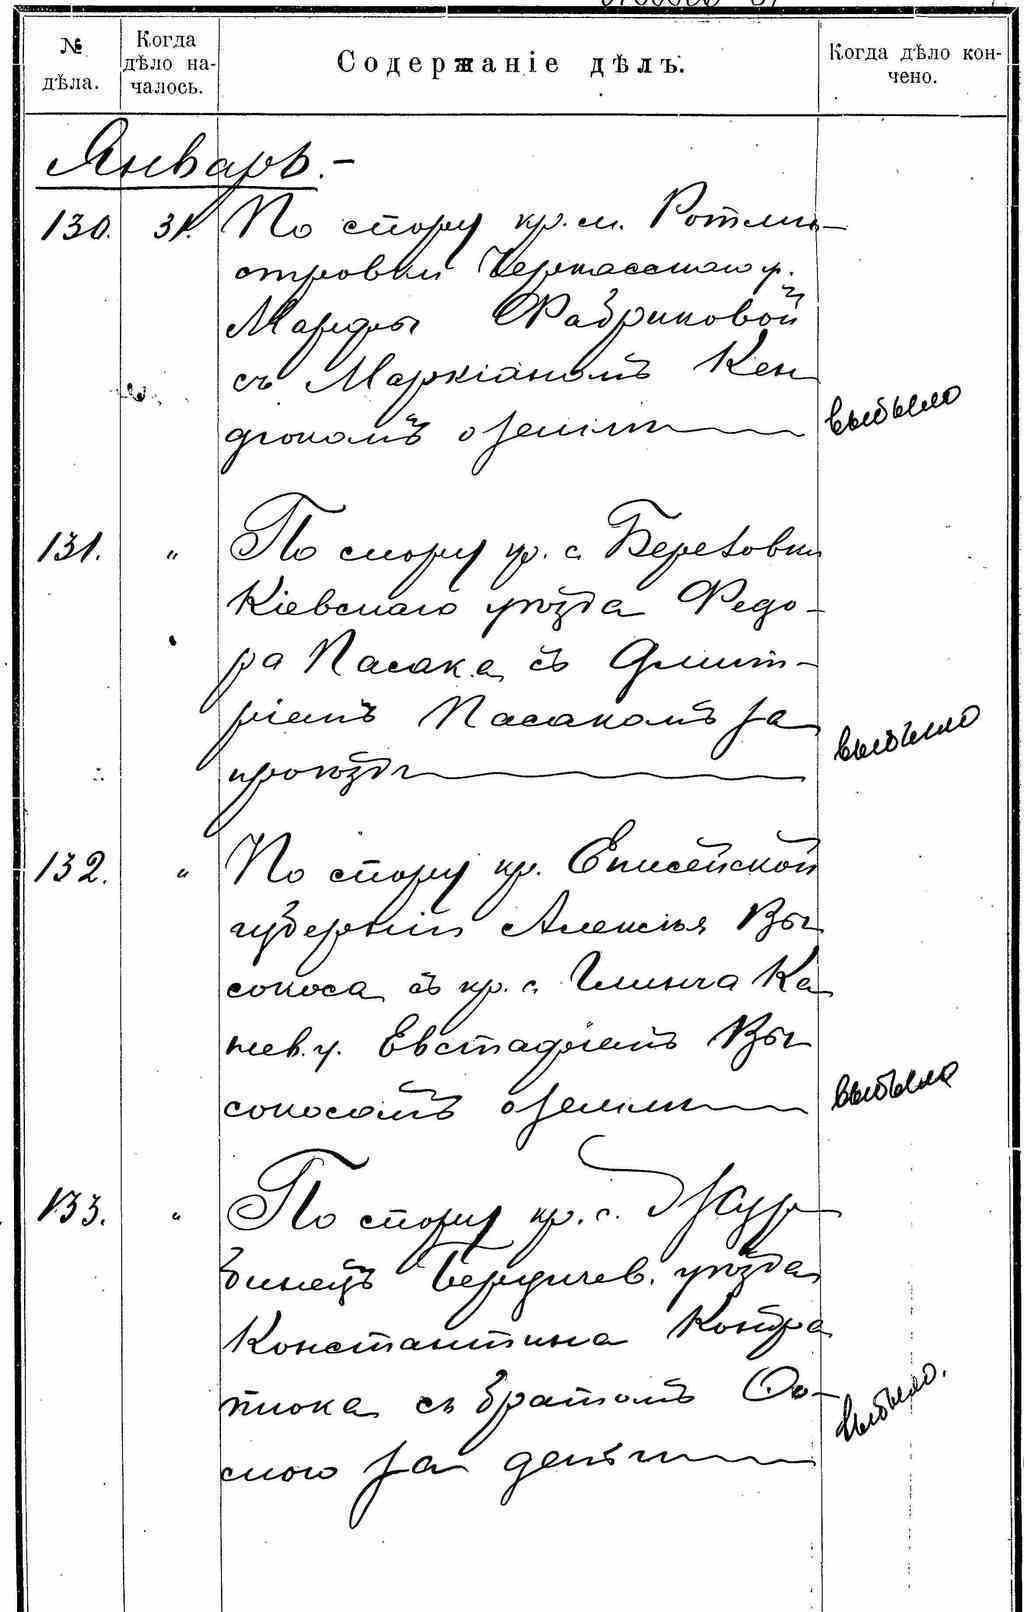 № дѣла.
Когда дѣло на-
чалось.
Содержаніе дѣлъ.
Когда дѣло кон-
чено.
Январь.-
130. 31. По спору кр. м. Ротми-
стровки Черкасскаго у.
Марфы Фабриковой
съ Маркіаномъ Кен
дюкомъ о земли
выбыло
131. " По спору кр. с. Березовки
Кіевскаго уѣзда Федо-
ра Пасака съ Дмит-
ріемъ Пасакомъ за
проѣздъ
выбыло
132. " По спору кр. Енисейской
губерніи Алексѣя Вы
сокоса съ кр. с. Глинча Ка
нев. у. Евстафіемъ Вы
сокосомъ о земли
выбыло
133. " По спору кр. с. Жур
бинецъ Бердичев. уѣзда
Константина Контра
тюка съ братомъ Ѳо-
мою за деньги
выбыло.